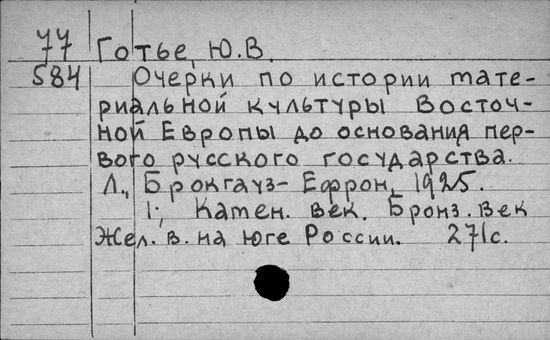 77 Готье, Ю.В.
584 Очерки по истории мате-
риальной культуры Восточ-
ной Европы до основания пер-
вого русского государства.
Л., Брокгауз-Ефрон, 1925.
1:, Камен. век. Бронз. век
Жел. в. на юге России. 271с.